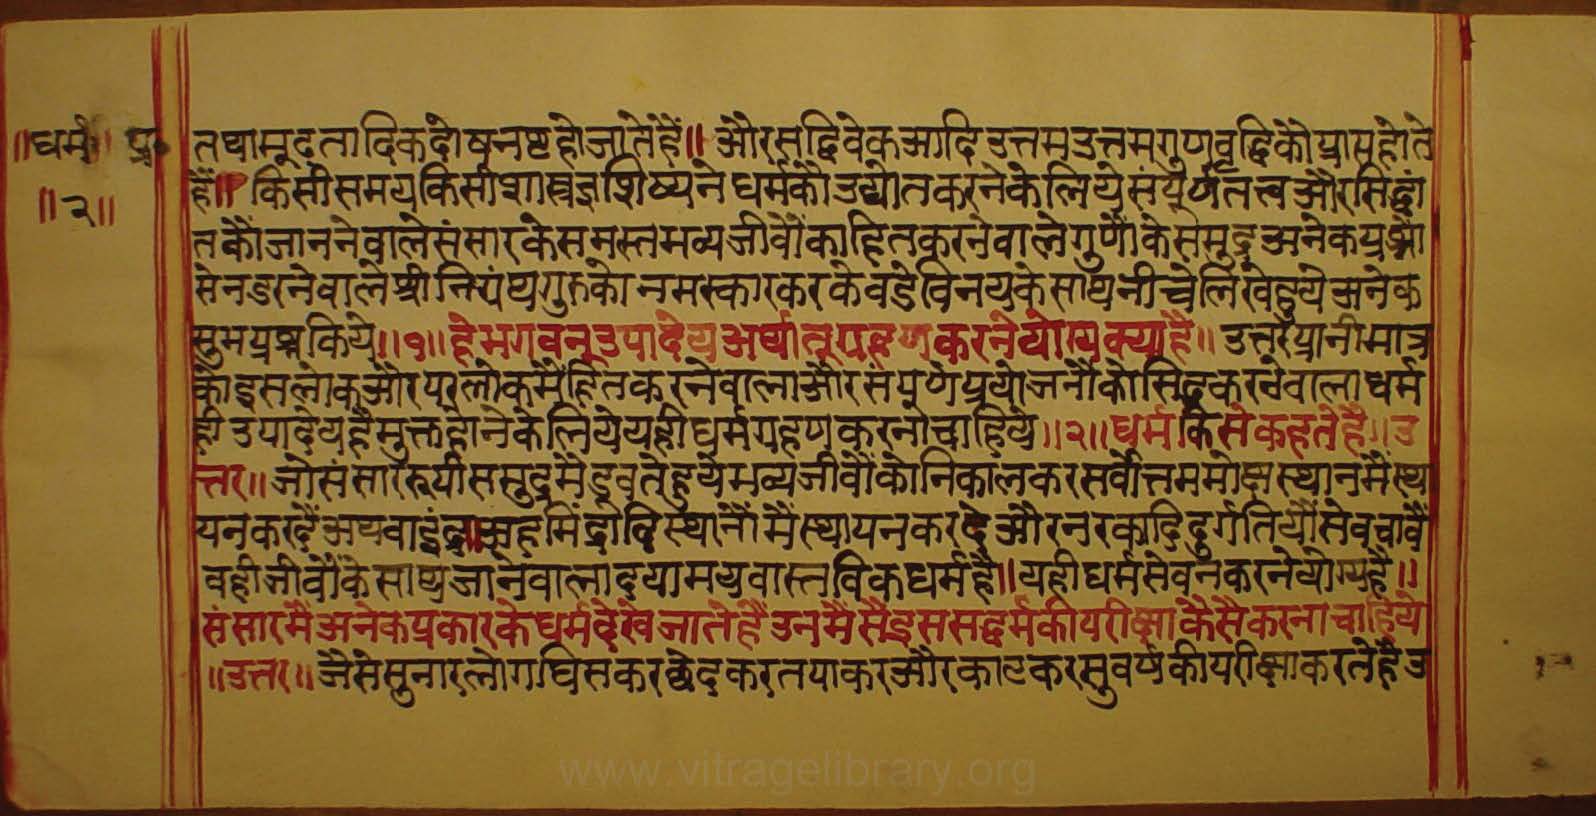 ॥धर्म॥ प्र॰
॥२॥
तथामूढतादिकदोषनष्टहोजातेहैं॥ औरसद्विवेकआदिउत्तमउत्तमगुणवृद्धिकोप्राप्तहोते
हैं॥ किसीसमयकिसीशास्त्रज्ञशिष्यने धर्मकोउद्योतकरनेकेलियेसंपूर्णतत्त्वऔरसिद्धां
तकोंजाननेवालेसंसारकेसमस्तभव्यजीवोंकाहितकरनेवालेगुणोंकेसमुद्रअनेकप्रश्नों
सेनडरनेवालेश्रीनिर्ग्रंथगुरुको नमस्कारकरकेवडेविनयकेसाथनीचेलिखेहुयेअनेक
सुभप्रश्नकिये॥१॥हेभगवन्उपादेयअर्थात्ग्रहणकरनेयोग्यक्याहै॥ उत्तरप्रानीमात्र
कोइसलोकऔरपरलोकमैंहितकरनेवालाऔरसंपूर्णप्रयोजनोंकोसिद्धकरनेवालाधर्म
ही उपादेयहैमुक्तहोनेकेलियेयहीधर्मग्रहणकरनाचाहिये॥२॥धर्मकिसेकहतेहै॥उ
त्तर॥जोसंसाररूपीससुद्रमैडुवतेहुयेभव्यजीवोंकोनिकालकरसर्वोत्तममोक्षस्थानमैंस्थ
पनकरदैंअथवाइंद्र॥अहमिंद्रादिस्थानोंमैंस्थापनकरदेऔरनरकादिदुर्गतियोंसेवचावैं
वहीजीवोंकेसाथजानेवालादयामयवास्तविकधर्महै॥यहीधर्मसेवनकरनेयोग्यहै॥
संसारमैंअनेकप्रकारकेधर्मदेखेजातेहैंउनमैंसैइससद्धर्मकीपरीक्षाकैसैकरनाचाहिये
॥उत्तर॥जैसेसुनारलोगघिसकरछेदकरतपाकरऔरकाटकरसुवर्णकीपरीक्षाकरतेहैउ
www.vitragelibrary.org